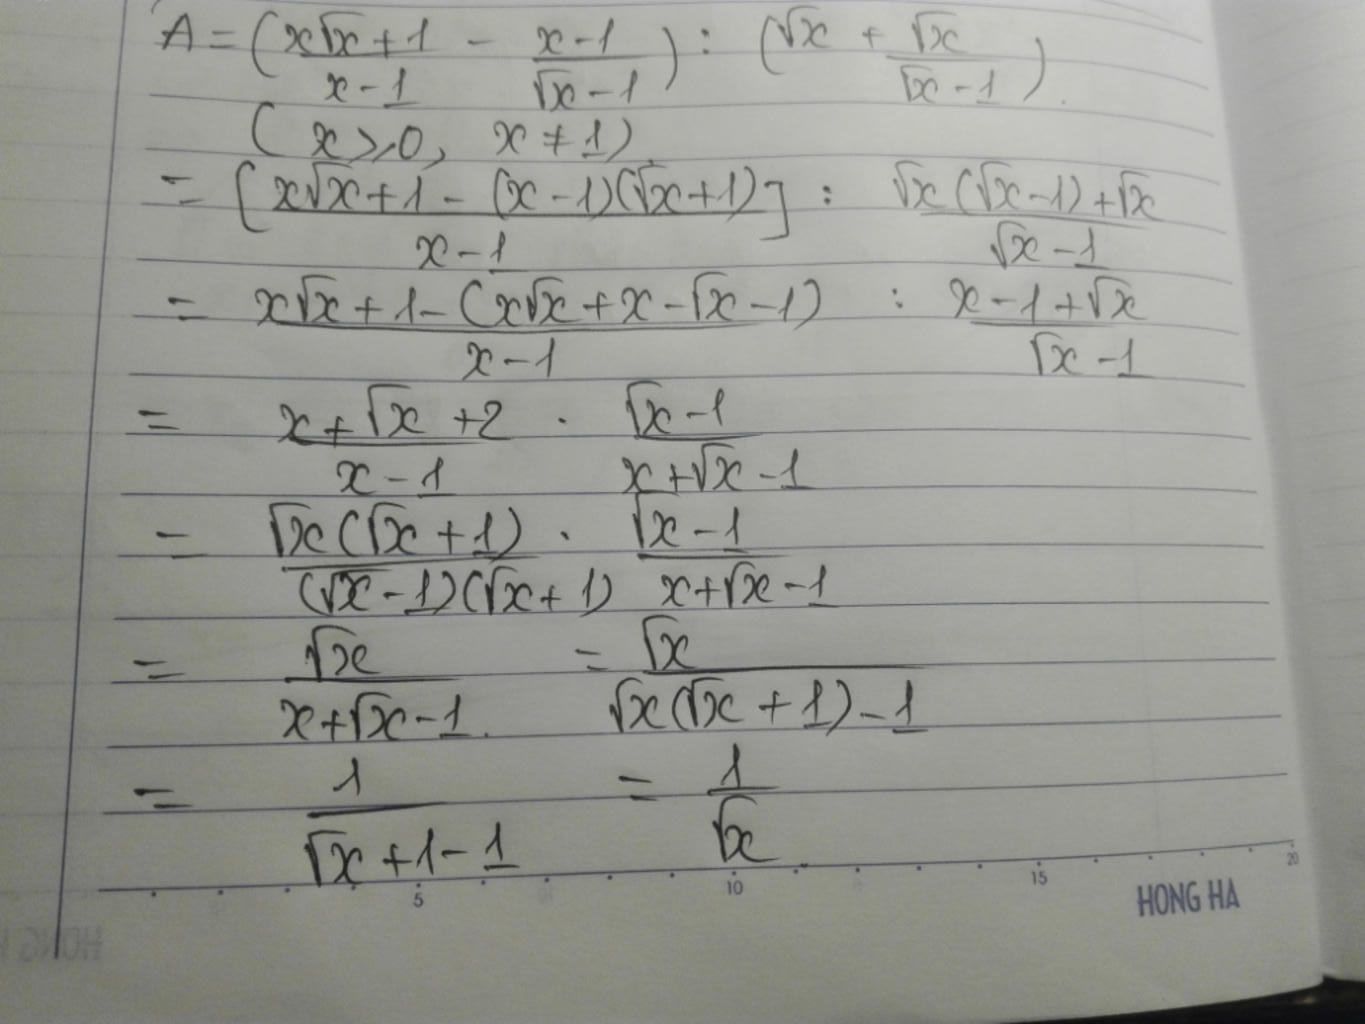 A = (x√x + 1 / x - 1 - x - 1 / √x - 1) : (√x + √x / √x - 1).
(x ⩾ 0, x ≠ 1)
= [x√x + 1 - (x - 1)(√x + 1) / x - 1] : √x(√x - 1) + √x / √x - 1
= x√x + 1 - (x√x + x - √x - 1) / x - 1 : x - 1 + √x / √x - 1
= x + √x + 2 / x - 1 . √x - 1 / x + √x - 1
= √x(√x + 1) / (√x - 1)(√x + 1) . √x - 1 / x + √x - 1
= √x / x + √x - 1. = √x / √x(√x + 1) - 1
= 1 / √x + 1 - 1 = 1 / √x
5 10 15 20
HONG HA